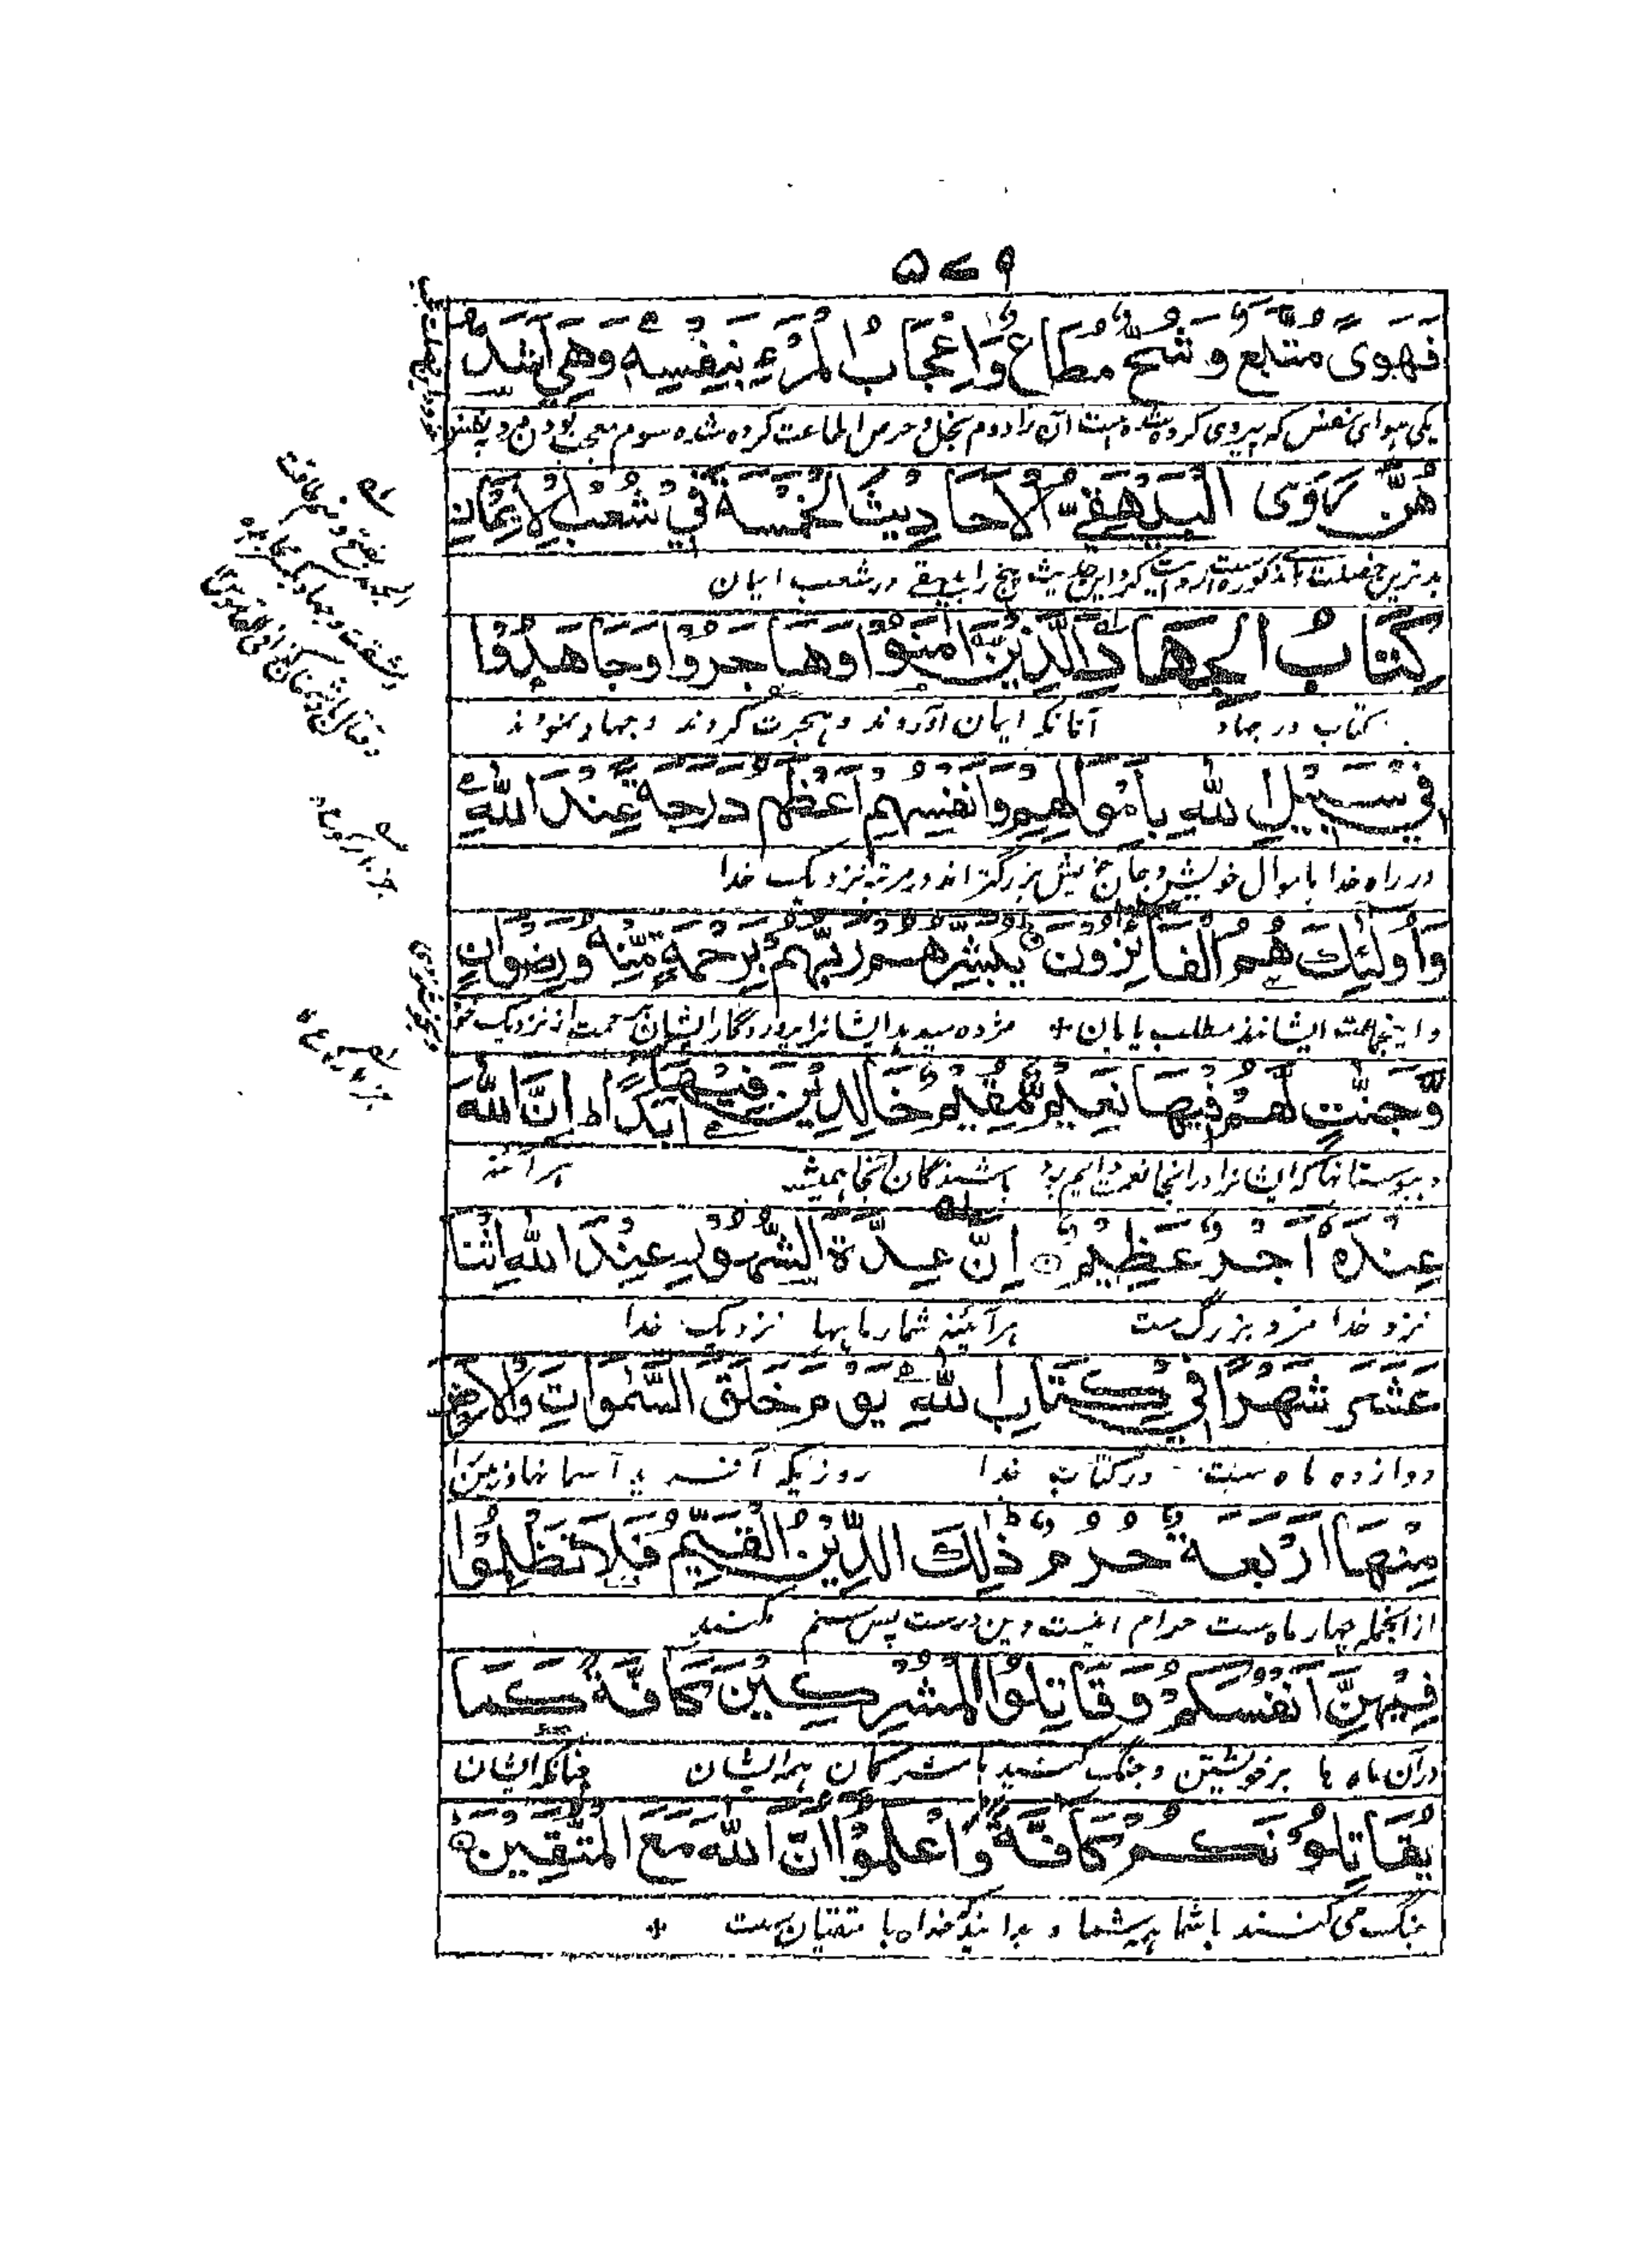 ۵۷۹
فَهَوىً مُتَّبَعٌ وَشُحٌّ مُطَاعٌ وَاِعْجَابُ الْمَرْءِ بِنَفْسِهٖ وَهِيَ اَشَدُّ
یکی هوای نفس که پیروی کرده شده است آن را دوم بخل و حرص اطاعت کرده شده سوم معجب بودن مرد بنفس
هُنَّ رَوَى الْبَيْهَقِيُّ الْاَحَادِيْثَ الْخَمْسَةَ فِيْ شُعَبِ الْاِيْمَانِ
بدترین خصلت روایت کرد این حدیث پنج را بیهقی در شعب ایمان
كِتَابُ الْجِهَادِ اَلَّذِيْنَ اٰمَنُوْا وَهَاجَرُوْا وَجَاهَدُوْا
کتاب در جهاد آنانکه ایمان آوردند و هجرت کردند و جهاد نمودند
فِيْ سَبِيْلِ اللّٰهِ بِاَمْوَالِهِمْ وَاَنْفُسِهِمْ اَعْظَمُ دَرَجَةً عِنْدَ اللّٰهِ
در راه خدا باموال خویش و جان خویش بزرگتراند در مرتبه نزدیک خدا
وَاُولٰئِكَ هُمُ الْفَائِزُوْنَ يُبَشِّرُهُمْ رَبُّهُمْ بِرَحْمَةٍ مِّنْهُ وَرِضْوَانٍ
و اینجماعت ایشانند مطلب یابان + مژده میدهد ایشانرا پروردگار ایشان برحمت از نزدیک خود
وَّجَنّٰتٍ لَّهُمْ فِيْهَا نَعِيْمٌ مُّقِيْمٌ خَالِدِيْنَ فِيْهَا اَبَدًا ط اِنَّ اللّٰهَ
و ببوستانها که ایشانرا در آنجا نعمت دایم بود باشندگان آنجا همیشه هر آئنه
عِنْدَهٗ اَجْرٌ عَظِيْمٌ اِنَّ عِدَّةَ الشُّهُوْرِ عِنْدَ اللّٰهِ اثْنَا
نزد خدا مزد بزرگ ست هر آئینه شمار ماهها نزدیک خدا
عَشَرَ شَهْرًا فِيْ كِتَابِ اللّٰهِ يَوْمَ خَلَقَ السَّمٰوَاتِ وَالْاَرْضَ
دوازده ماه ست در کتاب خدا روزیکه آفرید آسمانها و زمین را
مِنْهَا اَرْبَعَةٌ حُرُمٌ ذٰلِكَ الدِّيْنُ الْقَيِّمُ فَلَا تَظْلِمُوْا
از انجمله چهار ماه ست حرام اینست دین درست پس ستم مکنید
فِيْهِنَّ اَنْفُسَكُمْ وَقَاتِلُوا الْمُشْرِكِيْنَ كَافَّةً كَمَا
در آن ماه ها بر خویشتن و جنگ کنید با مشرکان همه ایشان چنانکه ایشان
يُقَاتِلُوْنَكُمْ كَافَّةً وَاعْلَمُوْا اَنَّ اللّٰهَ مَعَ الْمُتَّقِيْنَ
جنگ می کنند با شما همه شما و بدانید که خدا با متقیان ست +